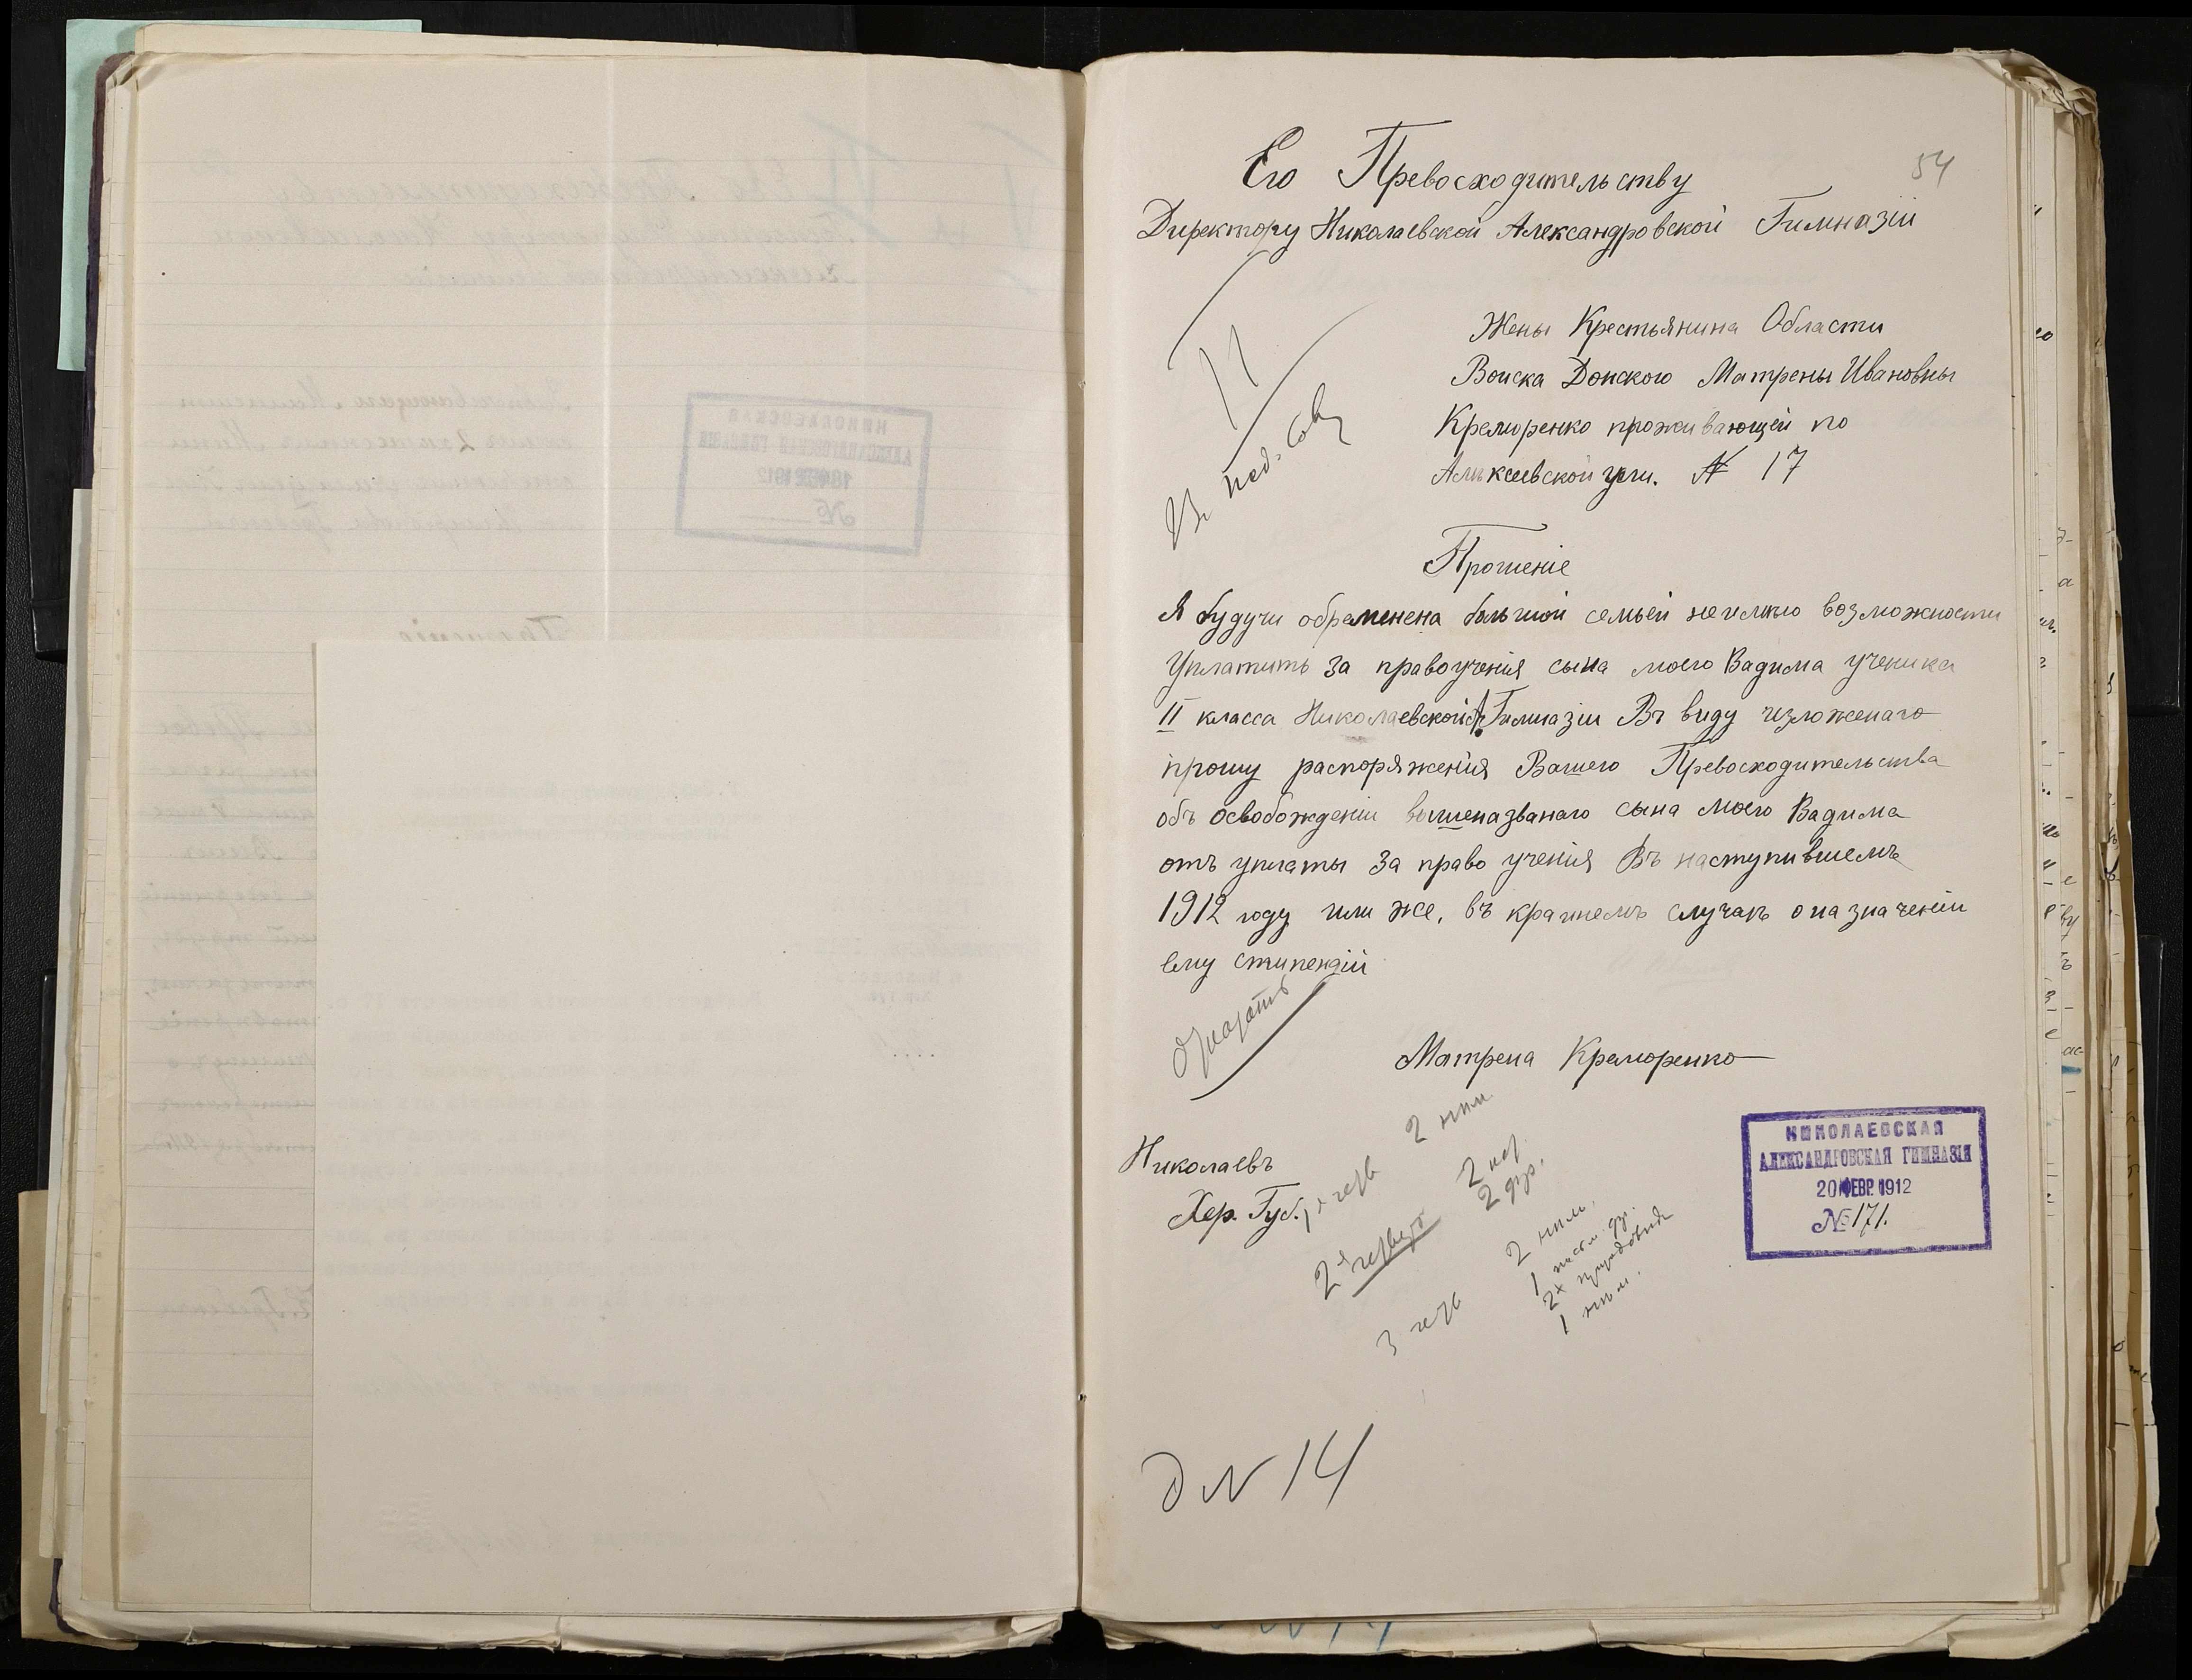 54
Его Превосходительству
Директору Николаевской Александровской Гимназіи
Жены Крестьянина Области
Воиска Донского Матрены Ивановны
Креморенко проживающей по
Алексеевской ули. № 17
Въ пед. Сов
Прошеніе
Я будучи обременена большой семьей неимѣю возможности
Уплатить за правоученія сына моего Вадима ученика
II класса Николаевской А. Гимназіи Въ виду изложенаго
прошу распоряженія Вашего Превосходительства
объ освобожденіи вышеназванаго сына моего Вадима
отъ уплаты за право ученія Въ наступившемъ
1912 году или же, въ краинемъ случаѣ о назначеніи
ему стипендій
Отказать
Матрена Креморенко
Николаевъ
Хер. Губ.
2 нѣм.
2я четверть
2 фр.
3 четв
2 нѣм.
1 нѣм.
НИКОЛАЕВСКАЯ
АЛЕКСАНДРОВСКАЯ ГИМНАЗІЯ
20 ФЕВР. 1912
№ 171.
д N 14